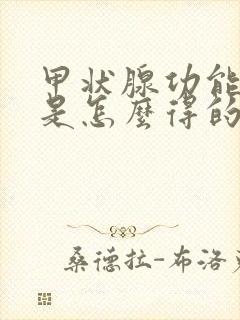 甲状腺功能
是怎麼得的
桑德拉-布洛